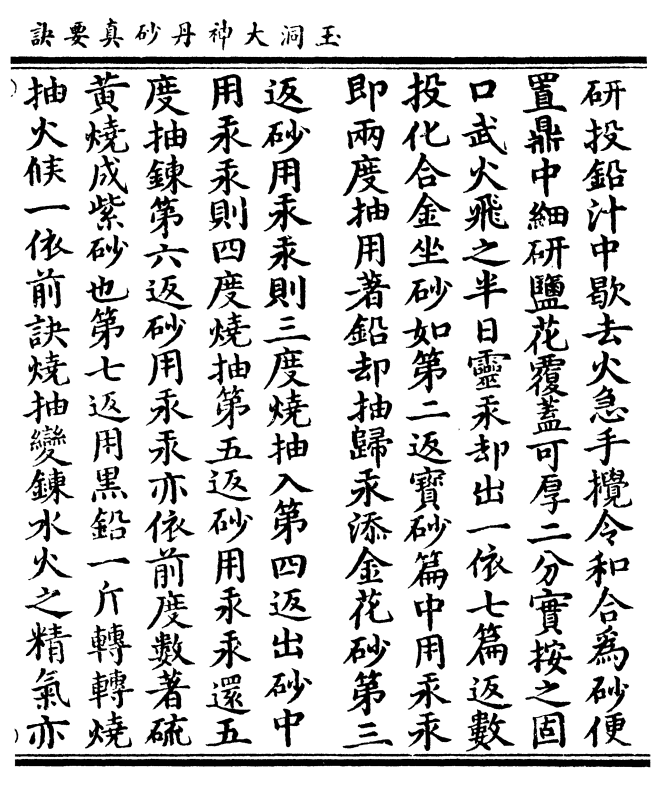 玉洞大神丹砂真要訣
研投鉛汁中歇去火急手攪令和合為砂便
置鼎中細研鹽花覆蓋可厚二分實按之固
口武火飛之半日靈汞却出一依七篇返數
投化合金坐砂如第二返寶砂篇中用汞汞
即兩度抽用著鉛却抽歸汞添金花砂第三
返砂用汞汞則三度燒抽入第四返出砂中
用汞汞則四度燒抽第五返砂用汞汞還五
度抽鍊第六返砂用汞汞亦依前度數著硫
黃燒成紫砂也第七返用黑鉛一斤轉轉燒
抽火候一依前訣燒抽變鍊水火之精氣亦